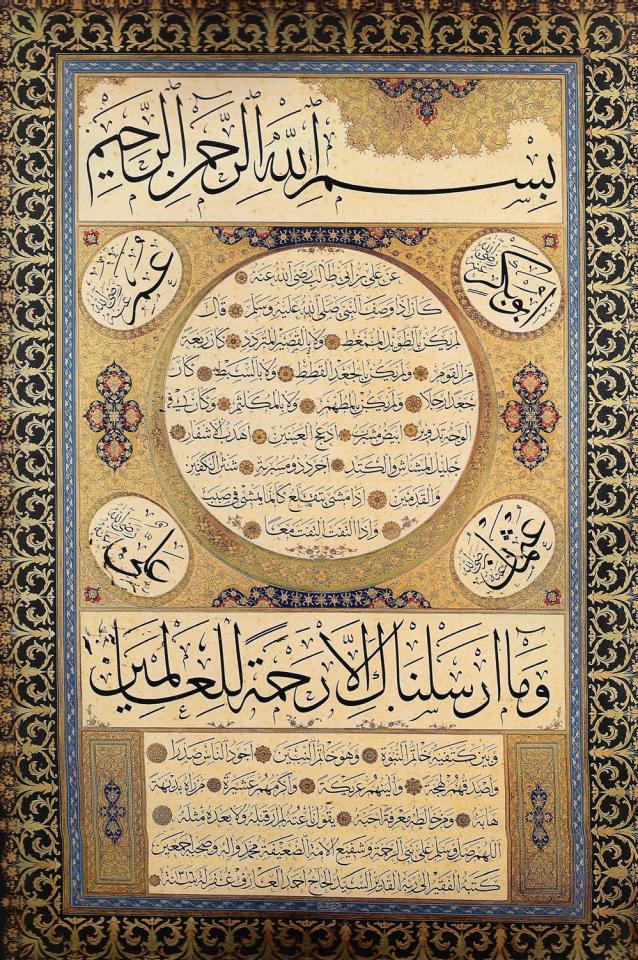 بسم الله الرحمن الرحيم
ابوبكر رضي الله عنه
عمر رضي الله عنه
عن علي بن ابي طالب رضي الله عنه
كان اذا وصف النبي صلى الله عليه وسلم قال
لم يكن بالطويل الممغط ولا بالقصير المتردد وكان ربعة
من القوم ولم يكن بالجعد القطط ولا بالسبط كان
جعدا رجلا ولم يكن بالمطهم ولا بالمكلثم وكان في
الوجه تدوير ابيض مشرب ادعج العينين اهدب الاشفار
جليل المشاش والكتد اجرد ذو مسربة شثن الكفين
والقدمين اذا مشى يتقلع كانما يمشي في صبب
واذا التفت التفت معا
عثمان رضي الله عنه
علي رضي الله عنه
وما ارسلناك الا رحمة للعالمين
وبين كتفيه خاتم النبوة وهو خاتم النبيين اجود الناس صدرا
واصدقهم لهجة والينهم عريكة واكرمهم عشيرة من راه بديهة
هابه ومن خالطه معرفة احبه يقول ناعته لم ار قبله ولا بعده مثله
اللهم صل وسلم على نبي الرحمة وشفيع الامة محمد واله وصحبه اجمعين
كتبه الفقير الى ربه القدير السيد الحاج احمد العارف غفر له ١٣١٦ سنة